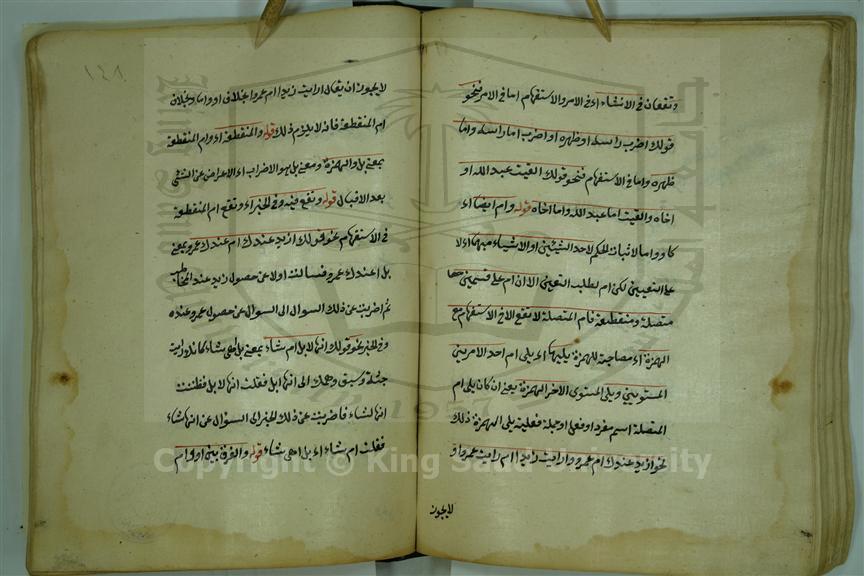 وتقعان في الانشاء اى في الامر والاستفهام اما في الامر فنحو
قولك اضرب راسه او ظهره او اضرب اما راسه واما
ظهره واما في الاستفهام فنحو قولك القيت عبد الله او
اخاه والقيت اما عبد الله واما اخاه قوله وام ايضا اى
كاو واما لاثبات الحكم لاحد الشيئين او الاشياء مبهما اى لا
على التعيين لكن ام لطلب التعيين الا ان ام على قسمين
متصلة ومنقطعة فام المتصلة لا تقع الا في الاستفهام مع
الهمزة اى مصاحبة للهمزة يليها اى يلى ام احد الامرين
المستويين ويلى المستوى الاخر الهمزة يعنى ان كان يلى ام
المتصلة اسم مفرد او فعل او جملة فعلية يلى الهمزة ذلك
نحو ازيد عندك ام عمرو وارايت زيدا ام رايت عمروا و
لا يجوز
١٤١
لا يجوز ان يقال ارايت زيدا ام عمروا بخلاف او واما وبخلاف
ام المنقطعة فانه لا يلزم ذلك قوله والمنقطعة اى وام المنقطعة
بمعنى بل والهمزة ومعنى بل هو الاضراب اى الاعراض عن الشئ
بعد الاقبال قوله وتقع فيه وفي الخبر اى وتقع ام المنقطعة
في الاستفهام نحو قولك ازيد عندك ام عندك عمرو بمعنى
بل اعندك عمرو فسالت اولا عن حصول زيد عند المخاطب
ثم اضربت عن ذلك السوال الى السوال عن حصول عمرو عنده
وفي الخبر نحو قولك انها لابل ام شاء بمعنى بل اهى شاء كانك رايت
جثة وسبق وهمك الى انها ابل فقلت انها لابل فظننت
انها شاء فاضربت عن ذلك الخبر الى السؤال عن انها شاء
فقلت ام شاء اى بل اهى شاء قوله والفرق بين او وام
Copyright © King Saud University
1957